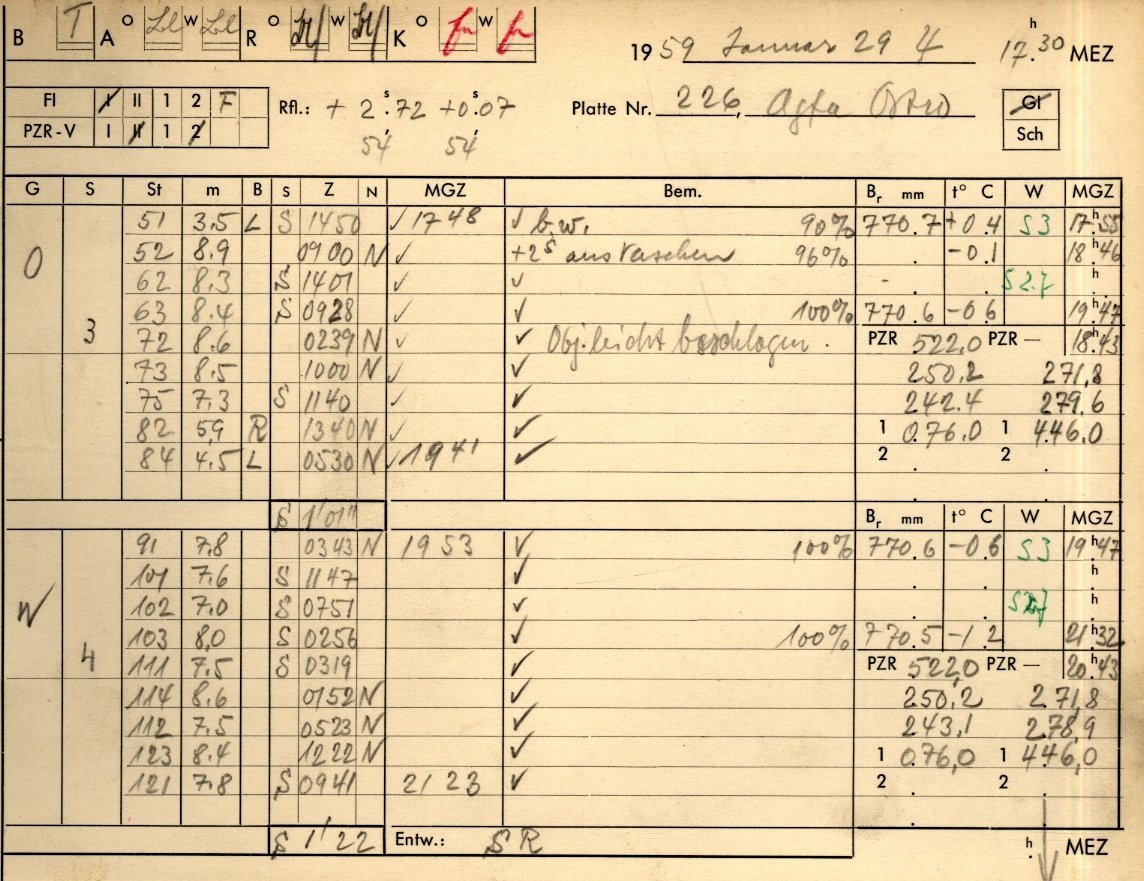 B T A O W R O W K O W
19 59 Januar 29 4 17.30 h MEZ
Fl I II 1 2 F Rfl.: + 2.72 s +0.07 s Platte Nr. 226, Agfa Gl
PZR-V I II 1 2 54 54 Sch
G S St m B S Z N MGZ Bem. Br mm t° C W MGZ
51 3.5 L S 1450 ✓ 1748 ✓ b.w. 90% 770.7 +0.4 S3 17h55
O 52 8.9 0900 N ✓ +2s 96% -0.1 18h46
62 8.3 S 1401 ✓ ✓ h
63 8.4 S 0928 ✓ ✓ 100% 770.6 -0.6 19h47
3 72 8.6 0239 N ✓ ✓ Obj. leicht beschlagen. PZR 522.0 PZR — 18h43
73 8.5 1000 N ✓ ✓ 250.2 271,8
75 7.3 S 1140 ✓ ✓ 242.4 279.6
82 5,9 R 1340 N ✓ ✓ 1 0.76.0 1 446.0
84 4.5 L 0530 N ✓ 1941 ✓ 2 2
S 1'01" Br mm t° C W MGZ
91 7.8 0343 N 1953 ✓ 100% 770.6 -0.6 S3 19h47
101 7.6 S 1147 ✓ h
W 102 7.0 S 0751 ✓ h
103 8,0 S 0256 ✓ 100% 770.5 -1.2 21h32
4 111 7.5 S 0319 ✓ PZR 522,0 PZR — 20h43
114 8.6 0152 N ✓ 250,2 271,8
112 7.5 0523 N ✓ 243,1 278,9
123 8.4 1222 N ✓ 1 0.76,0 1 446,0
121 7.8 S 0941 2123 ✓ 2 2
S 1'22 Entw.: SR h MEZ